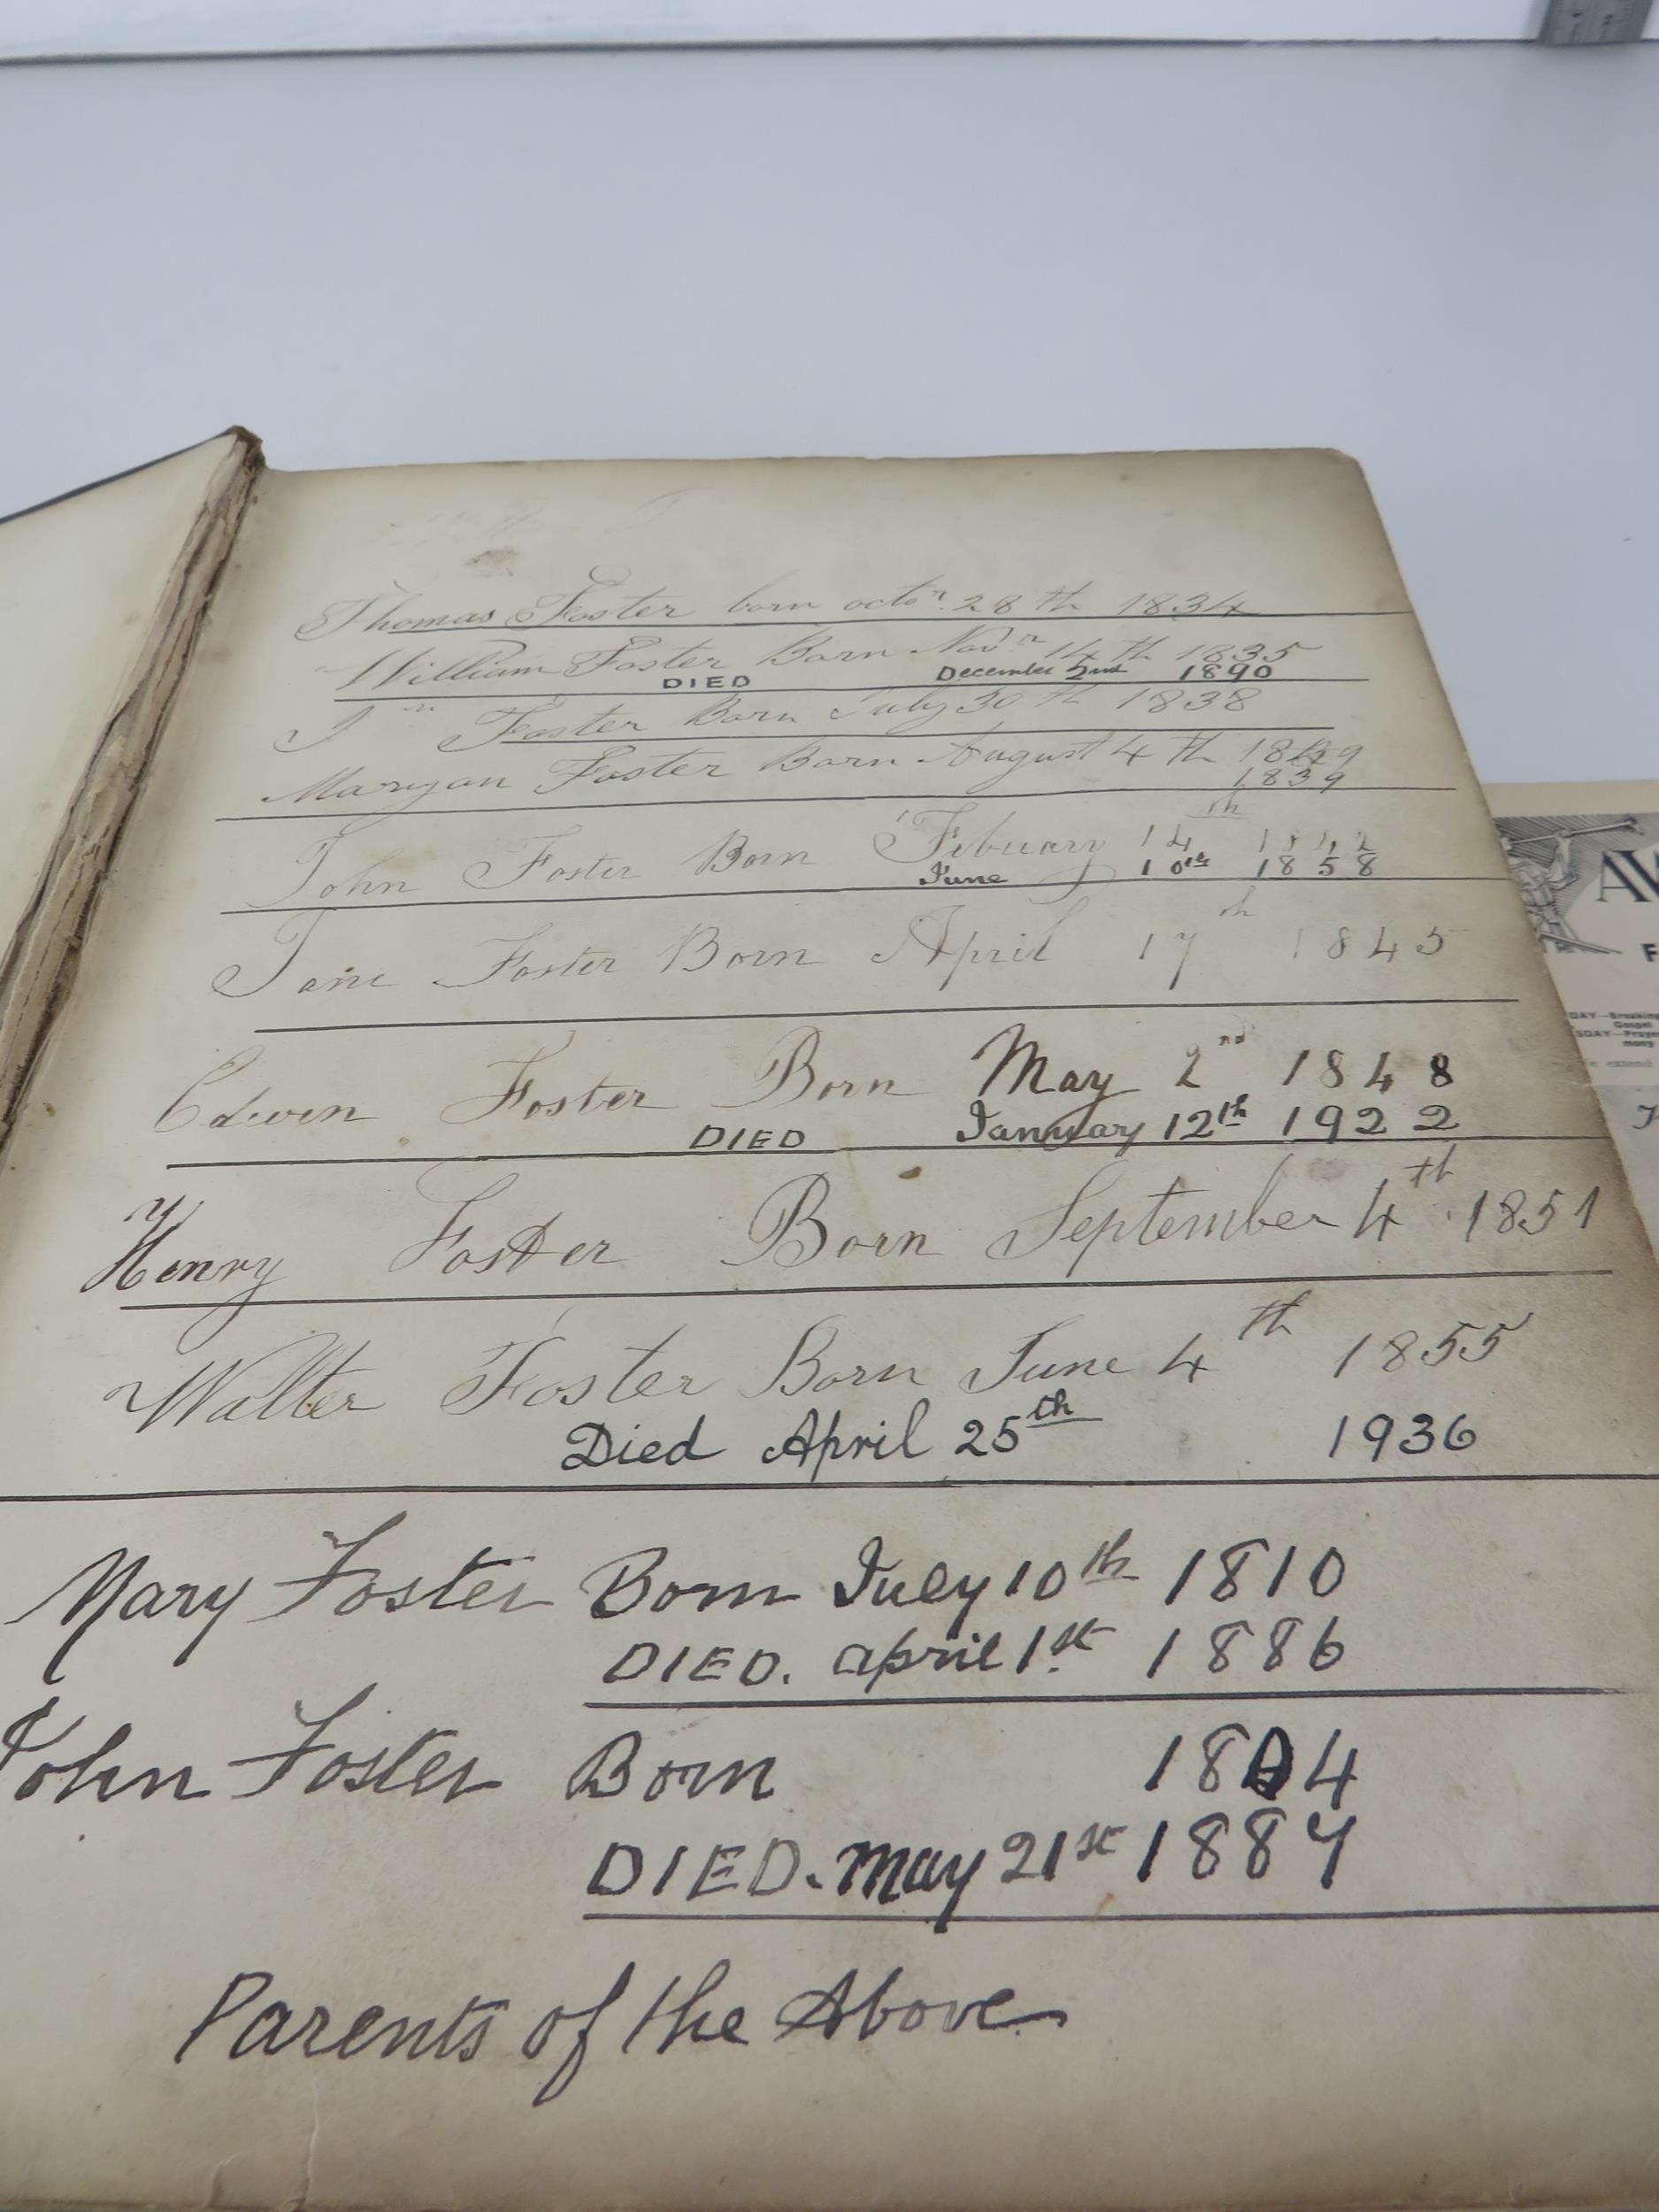 Thomas Foster born octor 28 th 1834
William Foster Born Novr 14 th 1835
DIED December 2nd 1890
Foster Born July 30 th 1838
Maryan Foster Born August 4 th
1839
John Foster Born Febuary 14th 1842
June 10th 1858
Jane Foster Born April 17th 1845
Edwin Foster Born May 2nd 1848
DIED January 12th 1922
Henry Foster Born September 4th 1851
Walter Foster Born June 4th 1855
Died April 25th 1936
Mary Foster Born July 10th 1810
DIED. april 1st 1886
John Foster Born 1804
DIED. May 21st 1887
Parents of the Above